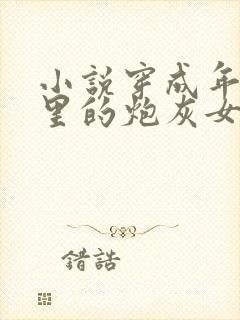 小說穿成年
里的炮灰女
錯誥